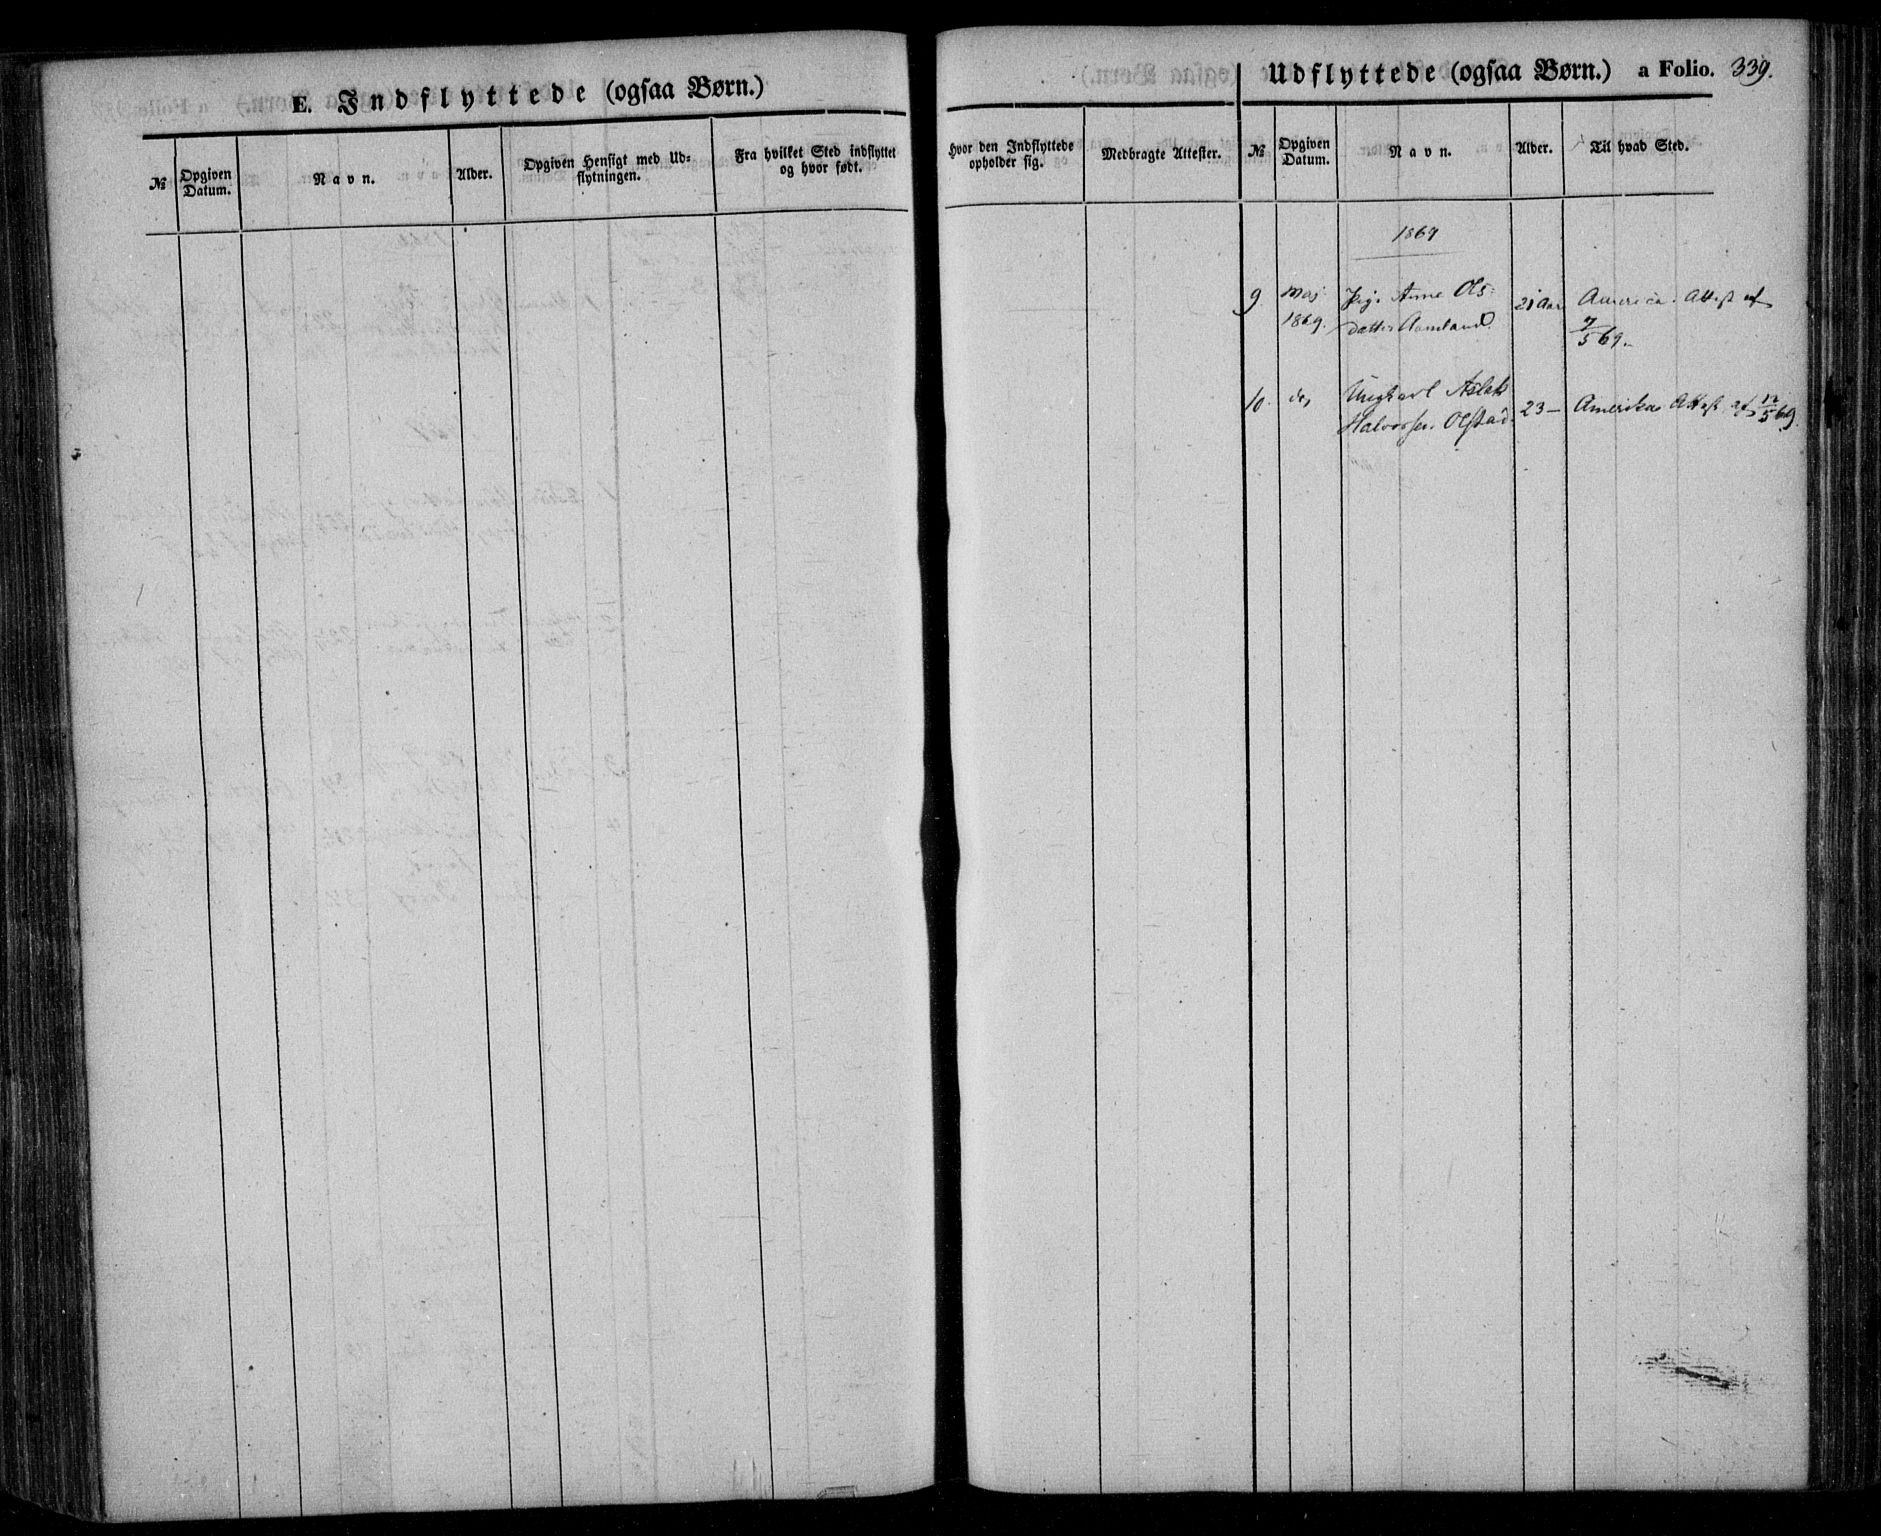 E. Indflyttede (ogsaa Børn.)
№
Opgiven Datum.
Navn.
Alder.
Opgiven Hensigt med Ud=
flytningen.
Fra hvilket Sted indflyttet
og hvor født.
Hvor den Indflyttede
opholder sig.
Medbragte Attester.
Udflyttede (ogsaa Børn.) a Folio. 339.
№
Opgiven Datum.
Navn.
Alder.
Til hvad Sted.
1869
9. Maj Pige Anne Ols= 21 Aar America. Attest af
1869. datter Aamland 7/5 69.
10. do, Ungkarl Aslak 23 — Amerika Attest af 12/5 69.
Halvorsen Olstad